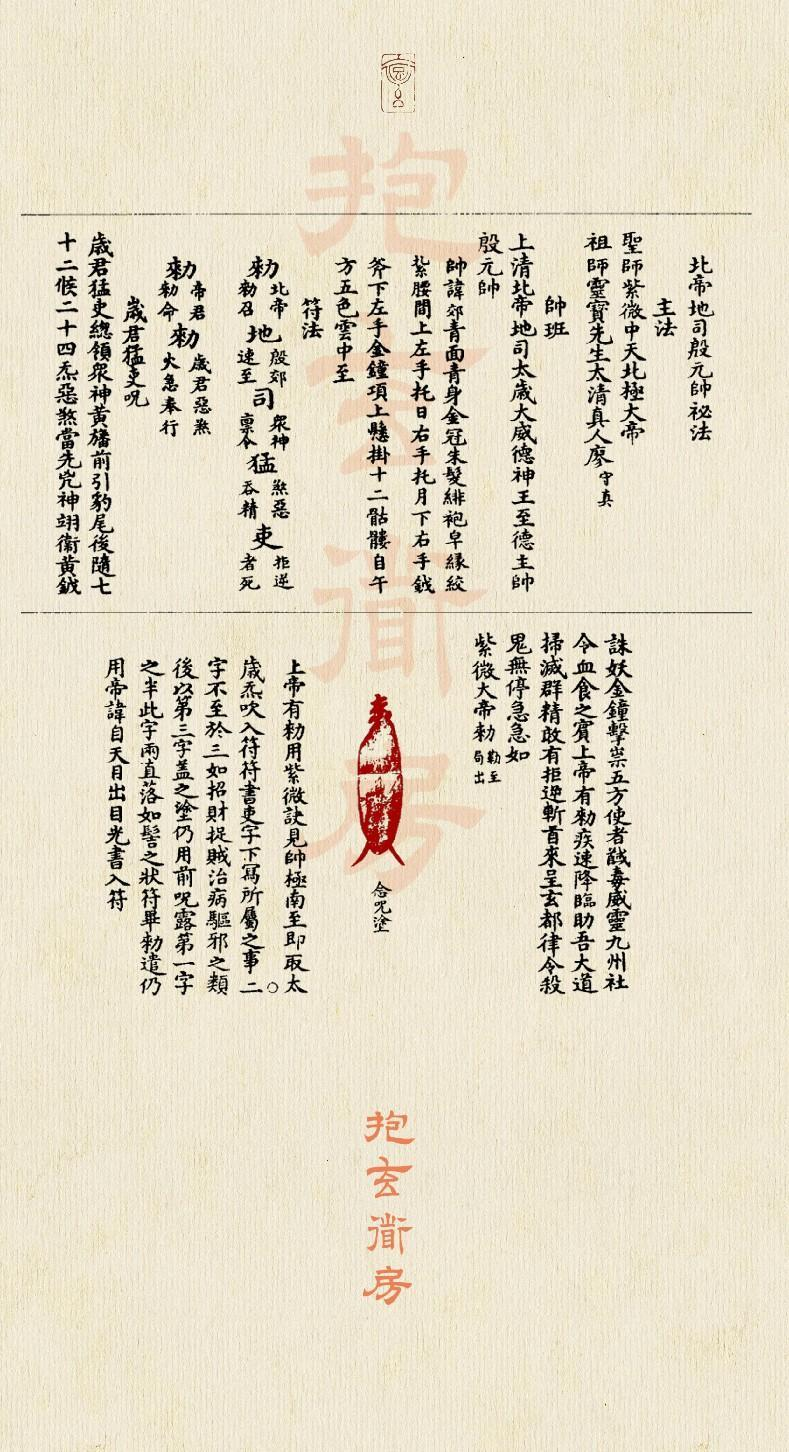 北帝地司殷元帥祕法
主法
聖師紫微中天北極大帝
祖師靈寶先生太清真人廖守真
帥班
上清北帝地司太歲大威德神王至德主帥
殷元帥
帥諱郊青面青身金冠朱髮緋袍皁緣絞
紮腰間上左手托日右手托月下右手鉞
斧下左手金鐘項上懸掛十二骷髏自午
方五色雲中至
符法
勅北帝勅召地殷郊速至司衆神稟令猛煞惡吞精吏拒逆者死
勑帝君勅令勑歲君惡煞火急奉行
歲君猛吏咒
歲君猛吏總領衆神黃旛前引豹尾後隨七
十二候二十四炁惡煞當先兇神翊衞黃鉞
誅妖金鐘擊祟五方使者毒威靈九州社
令血食之賓上帝有勑疾速降臨助吾大道
掃滅群精敢有拒逆斬首來呈玄都律令殺
鬼無停急急如
紫微大帝勑
念咒塗
上帝有勑用紫微訣見帥極南至即取太
歲炁吹入符符書吏字下寫所屬之事二
字不至於三如招財捉賊治病驅邪之類
後以第三字盖之塗仍用前咒露第一字
之半此字兩直落如髻之狀符畢勑遣仍
用帝諱自天目出目光書入符
抱玄衜房
抱玄衜房